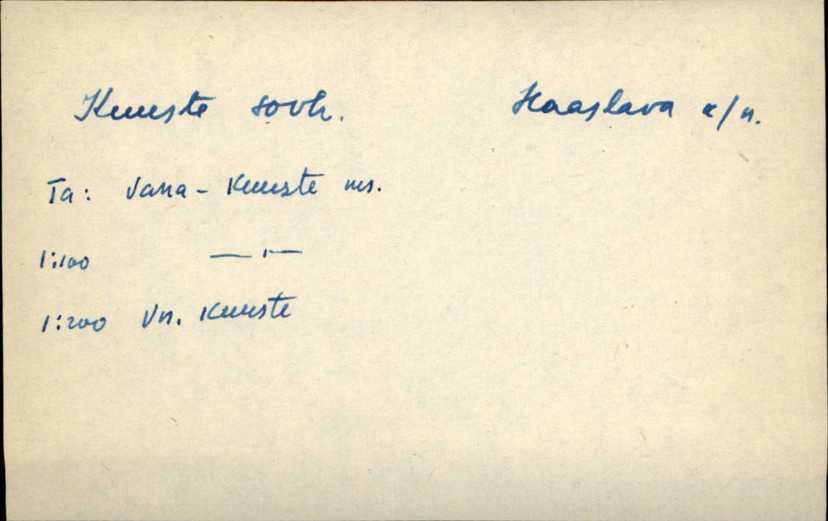 Kuuste sovh. Haaslava k/n.
Ta: Vana-Kuuste ms.
1:100 —"—
1:200 Vn. Kuuste